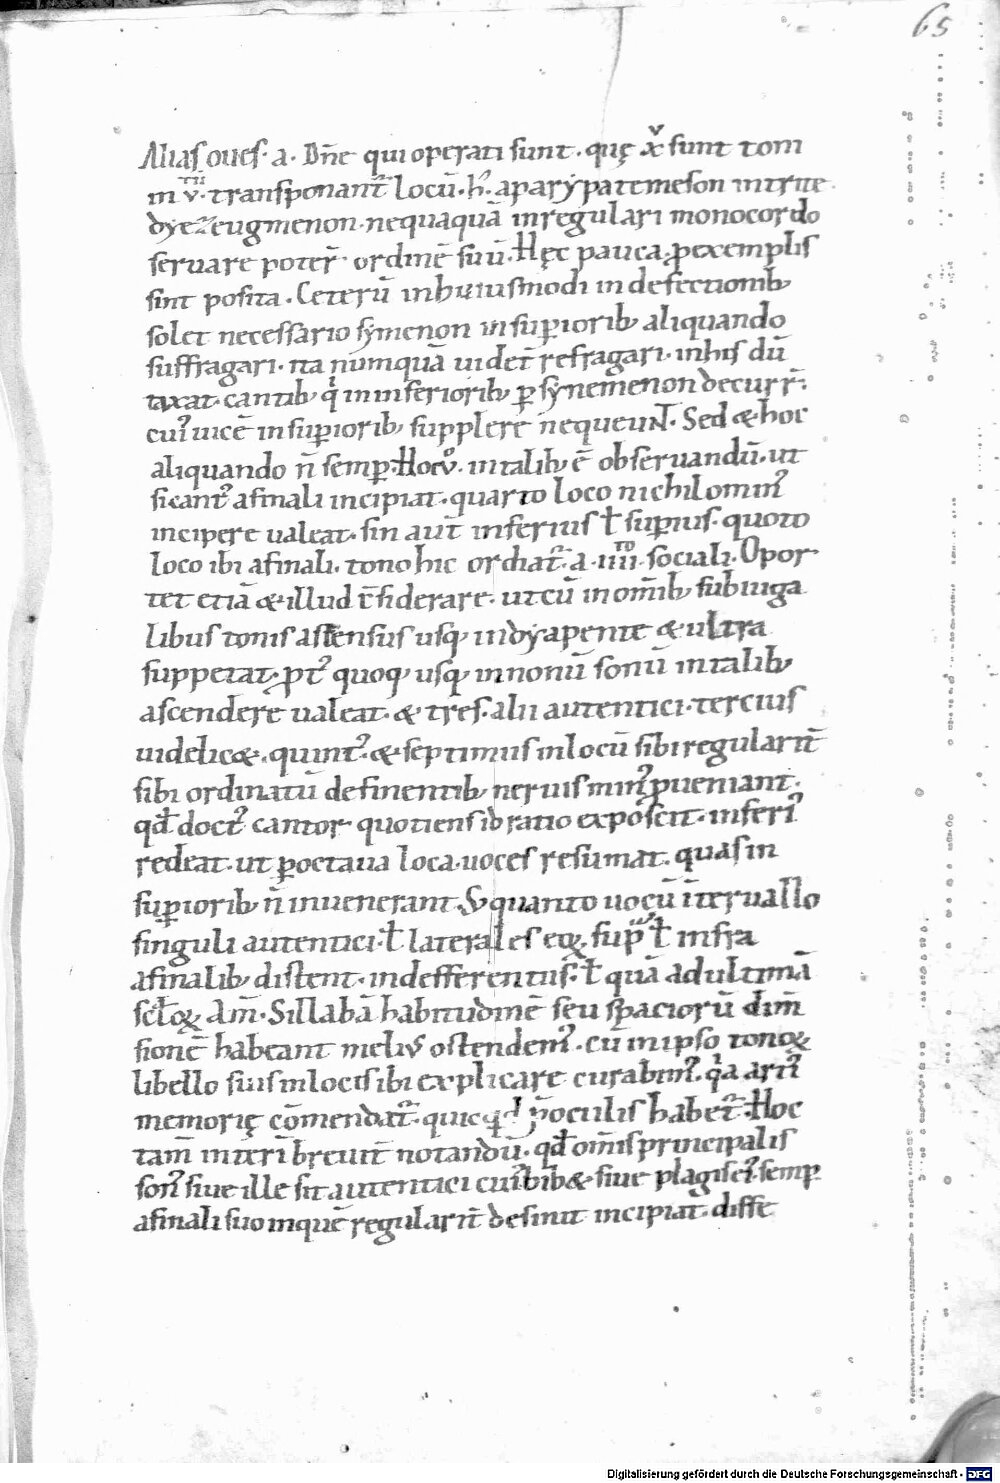 65
Alias oues. a. Dn̄e qui operati sunt. quę x̄ v sunt tom
in v̄. transponant᷑ locū. h. a parẏpatemeson in trite
dyezeugmenon. nequaquā in regulari monocordo
seruare poter̄. ordinē suū. Hęc pauca ꝓ exemplis
sint posita. Ceterū in huiusmodi in defectionib;
solet necessario sẏmenon in supioríb; aliquando
suffragari. ita numquā uidet᷑ refragari. in his dū
taxat. cantib; q̇ in inferiorib; ꝑ sẏnemenon decurr̄.
cui᷒ uicē in supiorib; supplere nequeunt. Sed & hoc
aliquando n̄ semp. Hoc v̊. in talib; ē obseruandū. ut
si cant᷒ a finali incipiat. quarto loco nichilomin᷒
incipere ualeat. sin aut̄ inferius ł supius. quoto
loco ibi a finali. tono hic ordiat᷑. a. iiii. sociali. Opor
tet etiā & illud c̄siderare. ut cū in om̄ib; subiuga
libus tonis ascensus usq; in dẏapente & ultra
suppetat. pt᷒ quoq; usq; in nonū sonū in talib;
ascendere ualeat. & tres. alii autentici. tercius
uidelic&. quint᷒. & septimus in locū sibi regularit̄
sibi ordinatū definentib; neruis min᷒ ꝓueniant.
qd̄ doct᷒ cantor. quotiens id ratio exposcit. inferi᷒
redeat. ut ꝑ octaua loca. uoces resumat. quas in
supiorib; n̄ inuenerant. S; quanto uocū īteruallo
singuli autentici. ł laterales eoꝝ. sup ł infra
a finalib; distent. in defferentiis. ł quā ad ultimā
sc̄loꝝ Am̄. Sillabā habitudinē seu spaciorū dim̄
sionē habeant melius ostendem᷒. cū in ipso tonoꝝ
libello suis in locis ibi explicare curabim᷒. q̇a arti᷒
memorię cōmendat᷑. quicqd p̄oculis habet᷑. Hoc
tam̄ interī breuit̄ notandū. qd̄ om̄is principalis
son᷒ siue ille sit autentici cui᷒libib& siue plagis ei᷒. semp
a finali suo inquē regularit̄ desinit incipiat. diffe
Digitalisierung gefördert durch die Deutsche Forschungsgemeinschaft - DFG